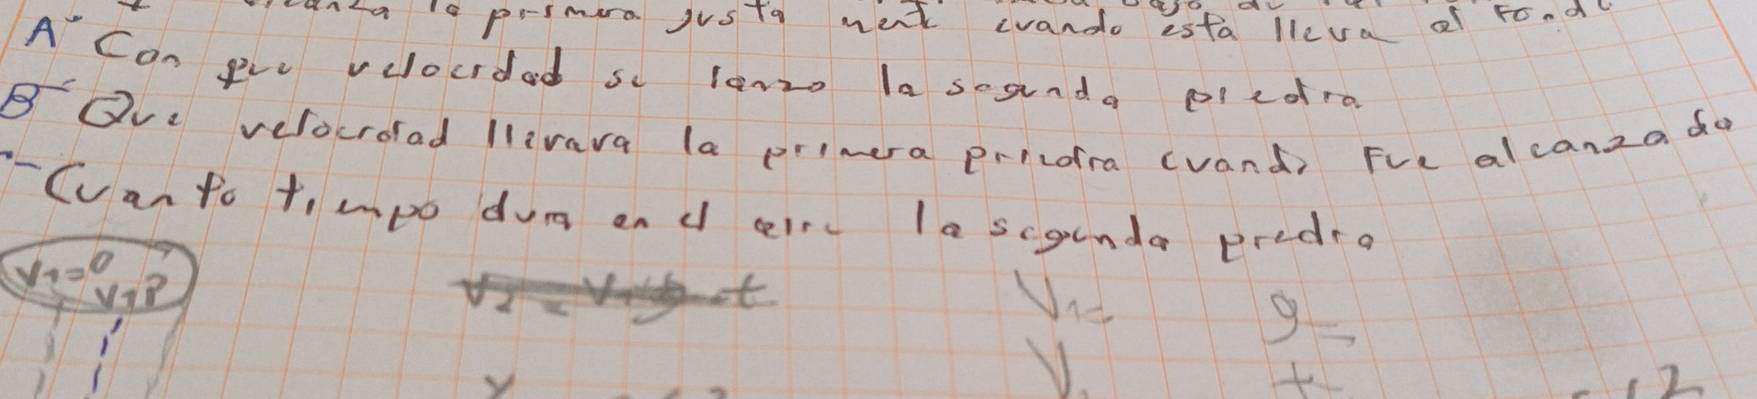 la primera justa ment cuando esta lleva al fondo
A- Con que velocidad se lanzo la segunda piedra
B- Que velocidad llevara la primera priedra cuando Fue alcanzada
- Cuanto tiempo dura en el aire la segunda piedra
V1=0
V1?
V2=V1 g.t
V1= g=
V. t